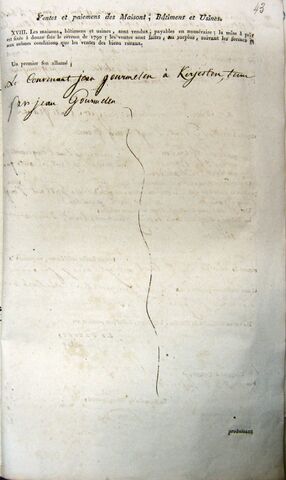 43
Ventes et paiemens des Maisons, Bâtimens et Usines.
XVIII. Les maisons, bâtimens et usines, sont vendus, payables en numéraire; la mise à prix
est fixée à douze fois le revenu de 1790; les ventes sont faites, au surplus, suivant les formes et
aux mêmes conditions que les ventes des biens ruraux.
Un premier feu allumé;
Le Convenant jean gourmelen à Kergoston tenu
par jean Gourmelen
produisant